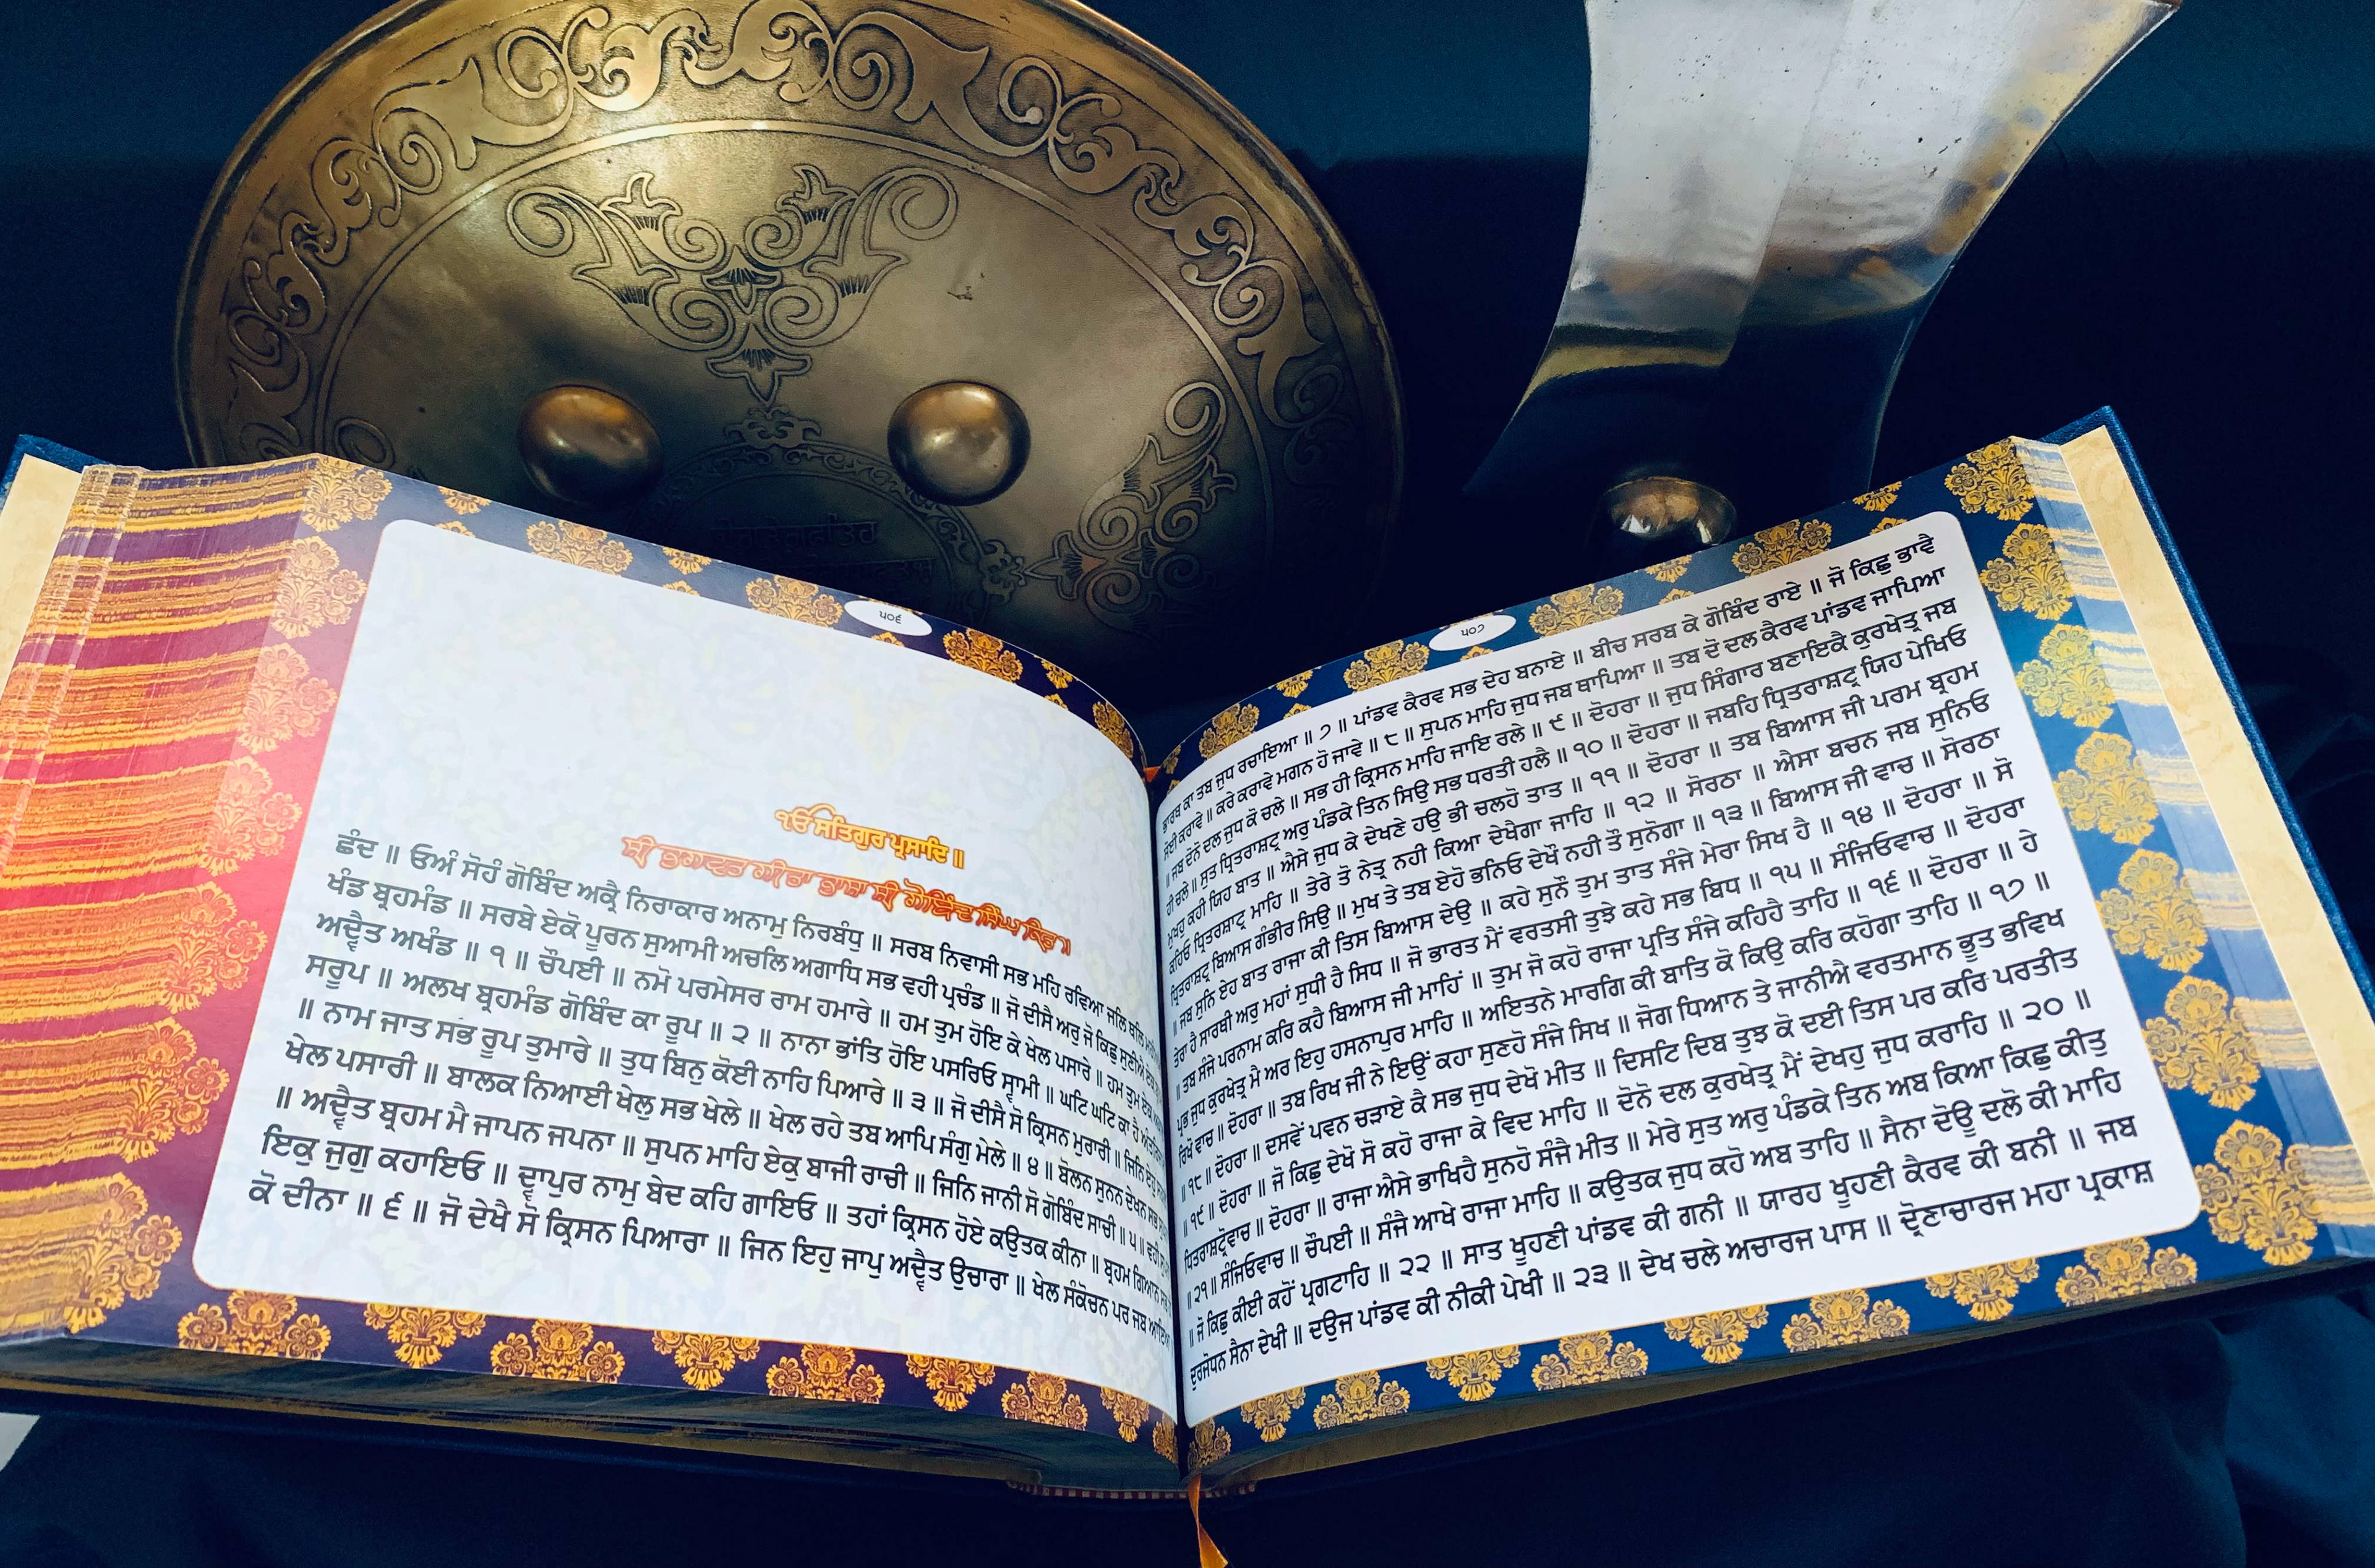 ੫੦੬
ੴ ਸਤਿਗੁਰ ਪ੍ਰਸਾਦਿ ॥
ਸ੍ਰੀ ਭਗਵਤ ਗੀਤਾ ਭਾਸ਼ਾ ਸ੍ਰੀ ਗੋਬਿੰਦ ਸਿੰਘ ਕ੍ਰਿਤ ॥
ਛੰਦ ॥ ਓਅੰ ਸੋਹੰ ਗੋਬਿੰਦ ਅਕ੍ਰੈ ਨਿਰਾਕਾਰ ਅਨਾਮੁ ਨਿਰਬੰਧੁ ॥ ਸਰਬ ਨਿਵਾਸੀ ਸਭ ਮਹਿ ਰਵਿਆ ਜਲਿ ਥਲਿ
ਖੰਡ ਬ੍ਰਹਮੰਡ ॥ ਸਰਬੇ ਏਕੋ ਪੂਰਨ ਸੁਆਮੀ ਅਚਲਿ ਅਗਾਧਿ ਸਭ ਵਹੀ ਪ੍ਰਚੰਡ ॥ ਜੋ ਦੀਸੈ ਅਰੁ ਜੋ ਕਿਛੁ ਸੁਣੀਐ
ਅਦ੍ਵੈਤ ਅਖੰਡ ॥ ੧ ॥ ਚੌਪਈ ॥ ਨਮੋ ਪਰਮੇਸਰ ਰਾਮ ਹਮਾਰੇ ॥ ਹਮ ਤੁਮ ਹੋਇ ਕੇ ਖੇਲ ਪਸਾਰੇ ॥ ਹਮ ਤੁਮ
ਸਰੂਪ ॥ ਅਲਖ ਬ੍ਰਹਮੰਡ ਗੋਬਿੰਦ ਕਾ ਰੂਪ ॥ ੨ ॥ ਨਾਨਾ ਭਾਂਤਿ ਹੋਇ ਪਸਰਿਓ ਸ੍ਵਾਮੀ ॥ ਘਟਿ ਘਟਿ ਕਾ ਹੈ
॥ ਨਾਮ ਜਾਤ ਸਭ ਰੂਪ ਤੁਮਾਰੇ ॥ ਤੁਧ ਬਿਨੁ ਕੋਈ ਨਾਹਿ ਪਿਆਰੇ ॥ ੩ ॥ ਜੋ ਦੀਸੈ ਸੋ ਕ੍ਰਿਸਨ ਮੁਰਾਰੀ ॥ ਜਿਨਿ
ਖੇਲ ਪਸਾਰੀ ॥ ਬਾਲਕ ਨਿਆਈ ਖੇਲੁ ਸਭ ਖੇਲੇ ॥ ਖੇਲ ਰਹੇ ਤਬ ਆਪਿ ਸੰਗੁ ਮੇਲੇ ॥ ੪ ॥ ਬੋਲਨ ਸੁਨਨ ਦੇਖਨ ਸਭ
॥ ਅਦ੍ਵੈਤ ਬ੍ਰਹਮ ਮੈ ਜਾਪਨ ਜਪਨਾ ॥ ਸੁਪਨ ਮਾਹਿ ਏਕੁ ਬਾਜੀ ਰਾਚੀ ॥ ਜਿਨਿ ਜਾਨੀ ਸੋ ਗੋਬਿੰਦ ਸਾਚੀ ॥ ੫ ॥
ਇਕੁ ਜੁਗੁ ਕਹਾਇਓ ॥ ਦ੍ਵਾਪੁਰ ਨਾਮੁ ਬੇਦ ਕਹਿ ਗਾਇਓ ॥ ਤਹਾਂ ਕ੍ਰਿਸਨ ਹੋਏ ਕਉਤਕ ਕੀਨਾ ॥ ਬ੍ਰਹਮ ਗਿਆਨ
ਕੋ ਦੀਨਾ ॥ ੬ ॥ ਜੋ ਦੇਖੈ ਸੋ ਕ੍ਰਿਸਨ ਪਿਆਰਾ ॥ ਜਿਨ ਇਹੁ ਜਾਪੁ ਅਦ੍ਵੈਤ ਉਚਾਰਾ ॥ ਖੇਲ ਸੰਕੋਚਨ ਪਰ ਜਬ
੫੦੭
ਭਾਰਥ ਕਾ ਤਬ ਜੁਧ ਰਚਾਇਆ ॥ ੭ ॥ ਪਾਂਡਵ ਕੈਰਵ ਸਭ ਦੇਹ ਬਨਾਏ ॥ ਬੀਚ ਸਰਬ ਕੇ ਗੋਬਿੰਦ ਰਾਏ ॥ ਜੋ ਕਿਛੁ ਭਾਵੈ
ਸੋਈ ਕਰਾਵੇ ॥ ਕਰੇ ਕਰਾਵੇ ਮਗਨ ਹੋ ਜਾਵੇ ॥ ੮ ॥ ਸੁਪਨ ਮਾਹਿ ਜੁਧ ਜਬ ਥਾਪਿਆ ॥ ਤਬ ਦੋ ਦਲ ਕੈਰਵ ਪਾਂਡਵ ਜਾਪਿਆ
॥ ਜਬ ਦੋਨੋ ਦਲ ਜੁਧ ਕੋ ਚਲੇ ॥ ਸਭ ਹੀ ਕ੍ਰਿਸਨ ਮਾਹਿ ਜਾਇ ਰਲੇ ॥ ੯ ॥ ਦੋਹਰਾ ॥ ਜੁਧ ਸਿੰਗਾਰ ਬਣਾਇਕੈ ਕੁਰਖੇਤ੍ਰ ਜਬ
ਹੀ ਚਲੇ ॥ ਸੁਤ ਧ੍ਰਿਤਰਾਸ਼ਟ੍ਰ ਅਰੁ ਪੰਡਕੇ ਤਿਨ ਸਿਉ ਸਭ ਧਰਤੀ ਹਲੈ ॥ ੧੦ ॥ ਦੋਹਰਾ ॥ ਜਬਹਿ ਧ੍ਰਿਤਰਾਸ਼ਟ੍ਰ ਯਿਹ ਪੇਖਿਓ
ਮੁਖਹੁ ਕਹੀ ਯਿਹ ਬਾਤ ॥ ਐਸੇ ਜੁਧ ਕੇ ਦੇਖਣੇ ਹਉ ਭੀ ਚਲਹੋ ਤਾਤ ॥ ੧੧ ॥ ਦੋਹਰਾ ॥ ਤਬ ਬਿਆਸ ਜੀ ਪਰਮ ਬ੍ਰਹਮ
ਕਹਿਓ ਧ੍ਰਿਤਰਾਸ਼ਟ੍ਰ ਮਾਹਿ ॥ ਤੇਰੇ ਤੋ ਨੇਤ੍ਰ ਨਹੀ ਕਿਆ ਦੇਖੈਗਾ ਜਾਹਿ ॥ ੧੨ ॥ ਸੋਰਠਾ ॥ ਐਸਾ ਬਚਨ ਜਬ ਸੁਨਿਓ
ਧ੍ਰਿਤਰਾਸ਼ਟ੍ਰ ਬਿਆਸ ਗੰਭੀਰ ਸਿਉ ॥ ਮੁਖ ਤੇ ਤਬ ਏਹੋ ਭਨਿਓ ਦੇਖੌ ਨਹੀ ਤੌ ਸੁਨੋਗਾ ॥ ੧੩ ॥ ਬਿਆਸ ਜੀ ਵਾਚ ॥ ਸੋਰਠਾ
॥ ਜਬ ਸੁਨਿ ਏਹ ਬਾਤ ਰਾਜਾ ਕੀ ਤਿਸ ਬਿਆਸ ਦੇਉ ॥ ਕਹੇ ਸੁਨੌ ਤੁਮ ਤਾਤ ਸੰਜੇ ਮੇਰਾ ਸਿਖ ਹੈ ॥ ੧੪ ॥ ਦੋਹਰਾ ॥ ਸੋ
ਤੇਰਾ ਹੈ ਸਾਰਥੀ ਅਰੁ ਮਹਾਂ ਸੁਧੀ ਹੈ ਸਿਧ ॥ ਜੋ ਭਾਰਤ ਮੈਂ ਵਰਤਸੀ ਤੁਝੇ ਕਹੇ ਸਭ ਬਿਧ ॥ ੧੫ ॥ ਸੰਜਿਓਵਾਚ ॥ ਦੋਹਰਾ
॥ ਤਬ ਸੰਜੇ ਪਰਨਾਮ ਕਰਿ ਕਹੈ ਬਿਆਸ ਜੀ ਮਾਹਿਂ ॥ ਤੁਮ ਜੋ ਕਹੋ ਰਾਜਾ ਪ੍ਰਤਿ ਸੰਜੇ ਕਹਿਹੈ ਤਾਹਿ ॥ ੧੬ ॥ ਦੋਹਰਾ ॥ ਹੇ
ਪ੍ਰਭ ਜੁਧ ਕੁਰਖੇਤ੍ਰ ਮੈ ਅਰ ਇਹੁ ਹਸਨਾਪੁਰ ਮਾਹਿ ॥ ਅਇਤਨੇ ਮਾਰਗਿ ਕੀ ਬਾਤਿ ਕੋ ਕਿਉ ਕਰਿ ਕਹੋਗਾ ਤਾਹਿ ॥ ੧੭ ॥
ਰਿਖੋ ਵਾਚ ॥ ਦੋਹਰਾ ॥ ਤਬ ਰਿਖ ਜੀ ਨੇ ਇਉਂ ਕਹਾ ਸੁਣਹੋ ਸੰਜੇ ਸਿਖ ॥ ਜੋਗ ਧਿਆਨ ਤੇ ਜਾਨੀਐ ਵਰਤਮਾਨ ਭੂਤ ਭਵਿਖ
॥ ੧੮ ॥ ਦੋਹਰਾ ॥ ਦਸਵੇਂ ਪਵਨ ਚੜਾਏ ਕੈ ਸਭ ਜੁਧ ਦੇਖੋ ਮੀਤ ॥ ਦਿਸਟਿ ਦਿਬ ਤੁਝ ਕੋ ਦਈ ਤਿਸ ਪਰ ਕਰਿ ਪਰਤੀਤ
॥ ੧੯ ॥ ਦੋਹਰਾ ॥ ਜੋ ਕਿਛੁ ਦੇਖੋ ਸੋ ਕਹੋ ਰਾਜਾ ਕੇ ਵਿਦ ਮਾਹਿ ॥ ਦੋਨੋ ਦਲ ਕੁਰਖੇਤ੍ਰ ਮੈਂ ਦੇਖਹੁ ਜੁਧ ਕਰਾਹਿ ॥ ੨੦ ॥
ਧਿਤਰਾਸ਼ਟ੍ਰੋਵਾਚ ॥ ਦੋਹਰਾ ॥ ਰਾਜਾ ਐਸੇ ਭਾਖਿਹੈ ਸੁਨਹੋ ਸੰਜੈ ਮੀਤ ॥ ਮੇਰੇ ਸੁਤ ਅਰੁ ਪੰਡਕੇ ਤਿਨ ਅਬ ਕਿਆ ਕਿਛੁ ਕੀਤੁ
॥ ੨੧ ॥ ਸੰਜਿਓਵਾਚ ॥ ਚੌਪਈ ॥ ਸੰਜੈ ਆਖੇ ਰਾਜਾ ਮਾਹਿ ॥ ਕਉਤਕ ਜੁਧ ਕਹੋ ਅਬ ਤਾਹਿ ॥ ਸੈਨਾ ਦੋਊ ਦਲੋ ਕੀ ਮਾਹਿ
॥ ਜੋ ਕਿਛੁ ਕੀਈ ਕਹੋਂ ਪ੍ਰਗਟਾਹਿ ॥ ੨੨ ॥ ਸਾਤ ਖੂਹਣੀ ਪਾਂਡਵ ਕੀ ਗਨੀ ॥ ਯਾਰਹ ਖੂਹਣੀ ਕੈਰਵ ਕੀ ਬਨੀ ॥ ਜਬ
ਦੁਰਜੋਧਨ ਸੈਨਾ ਦੇਖੀ ॥ ਦਉਜ ਪਾਂਡਵ ਕੀ ਨੀਕੀ ਪੇਖੀ ॥ ੨੩ ॥ ਦੇਖ ਚਲੇ ਅਚਾਰਜ ਪਾਸ ॥ ਦ੍ਰੋਣਾਚਾਰਜ ਮਹਾ ਪ੍ਰਕਾਸ਼